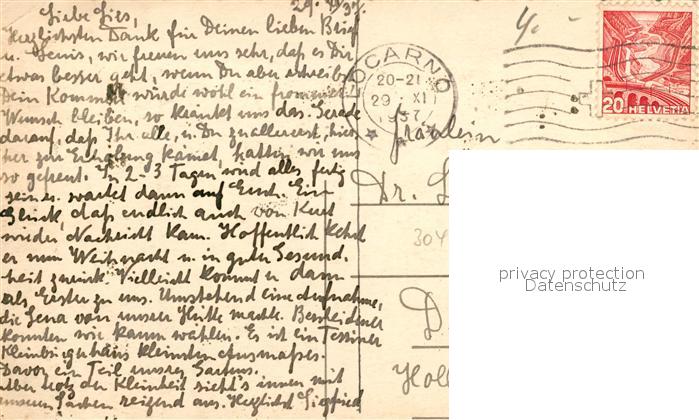 29. XI 37.
Liebe Lies,
Herzlichsten Dank für Deinen lieben Brief
u. Lenis, wir freuen uns sehr, daß es Dir
etwas besser geht, wenn Du aber schreibst
Dein Kommen würde wohl ein frommer
Wunsch bleiben, so kränkt uns das. Gerade
darauf, daß Ihr alle, u. Du zuallererst, hier
her zur Erholung kämet, hatten wir uns
so gefreut. In 2-3 Tagen wird alles fertig
sein u. wartet dann auf Euch. Ein
Glück, daß endlich auch von Kurt
wieder Nachricht kam. Hoffentlich kehrt
er nun Weihnacht u. in guter Gesund-
heit zurück. Vielleicht kommt er dann
als Erster zu uns. Umstehend eine Aufnahme,
die Lena von unserer Hütte machte. Bescheidener
konnten wir kaum wählen. Es ist ein Tessiner
Kleinbürgerhaus kleinsten Ausmaßes.
Davor ein Teil unseres Gartens.
Aber trotz der Kleinheit sieht's innen mit
unseren Sachen reizend aus. Herzlichst Siegfried
4.-
LOCARNO
20-21
29. XI
1937
20 HELVETIA
Fräulein
Dr. L
304
D
Holl
privacy protection
Datenschutz